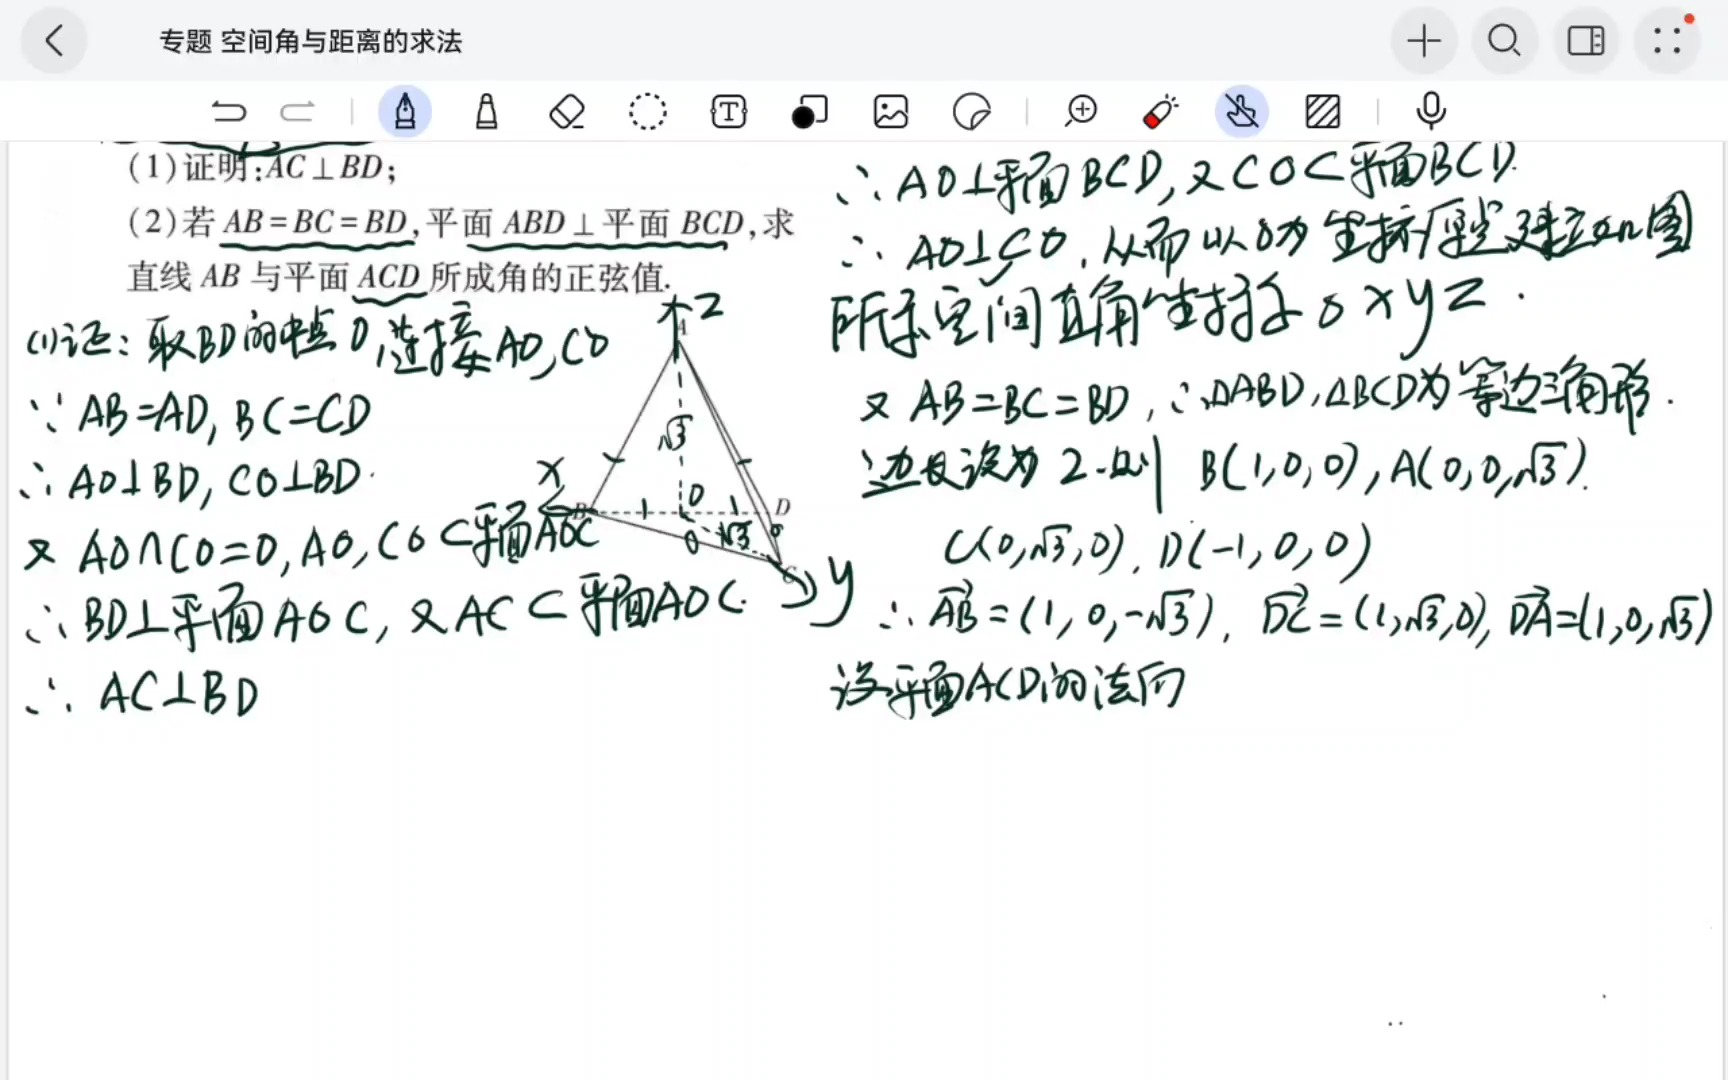 专题 空间角与距离的求法
(1)证明:AC⊥BD;
(2)若 AB=BC=BD,平面 ABD⊥平面 BCD,求
直线 AB 与平面 ACD 所成角的正弦值.
(1)证: 取BD的中点O,连接AO,CO
∵ AB=AD, BC=CD
∴ AO⊥BD, CO⊥BD.
又 AO∩CO=O, AO, CO⊂平面AOC
∴ BD⊥平面AOC, 又AC⊂平面AOC.
∴ AC⊥BD
z
A
√3
x
B
1
O
1
D
O
√3
C
y
∴ AO⊥平面BCD, 又CO⊂平面BCD.
∴ AO⊥CO, 从而以O为坐标原点建立如图
所示空间直角坐标系Oxyz.
又 AB=BC=BD, ∴△ABD, △BCD为等边三角形.
边长设为2.则 B(1,0,0), A(0,0,√3).
C(0,√3,0), D(-1,0,0)
∴ AB=(1,0,-√3), DC=(1,√3,0), DA=(1,0,√3)
设平面ACD的法向